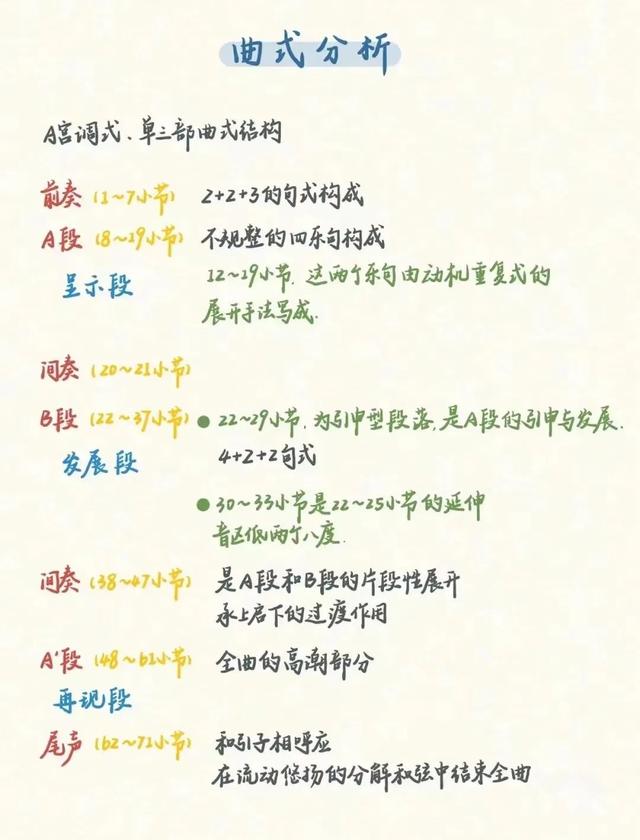 曲式分析
A宫调式、单三部曲式结构
前奏(1~7小节) 2+2+3的句式构成
A段(8~19小节) 不规整的四乐句构成
呈示段 12~19小节,这两个乐句由动机重复式的
展开手法写成.
间奏(20~21小节)
B段(22~37小节) ●22~29小节,为引申型段落,是A段的引申与发展.
发展段 4+2+2句式
●30~33小节是22~25小节的延伸
音区低两个八度.
间奏(38~47小节) 是A段和B段的片段性展开
承上启下的过渡作用
A'段(48~61小节) 全曲的高潮部分
再现段
尾声(62~71小节) 和引子相呼应
在流动悠扬的分解和弦中结束全曲